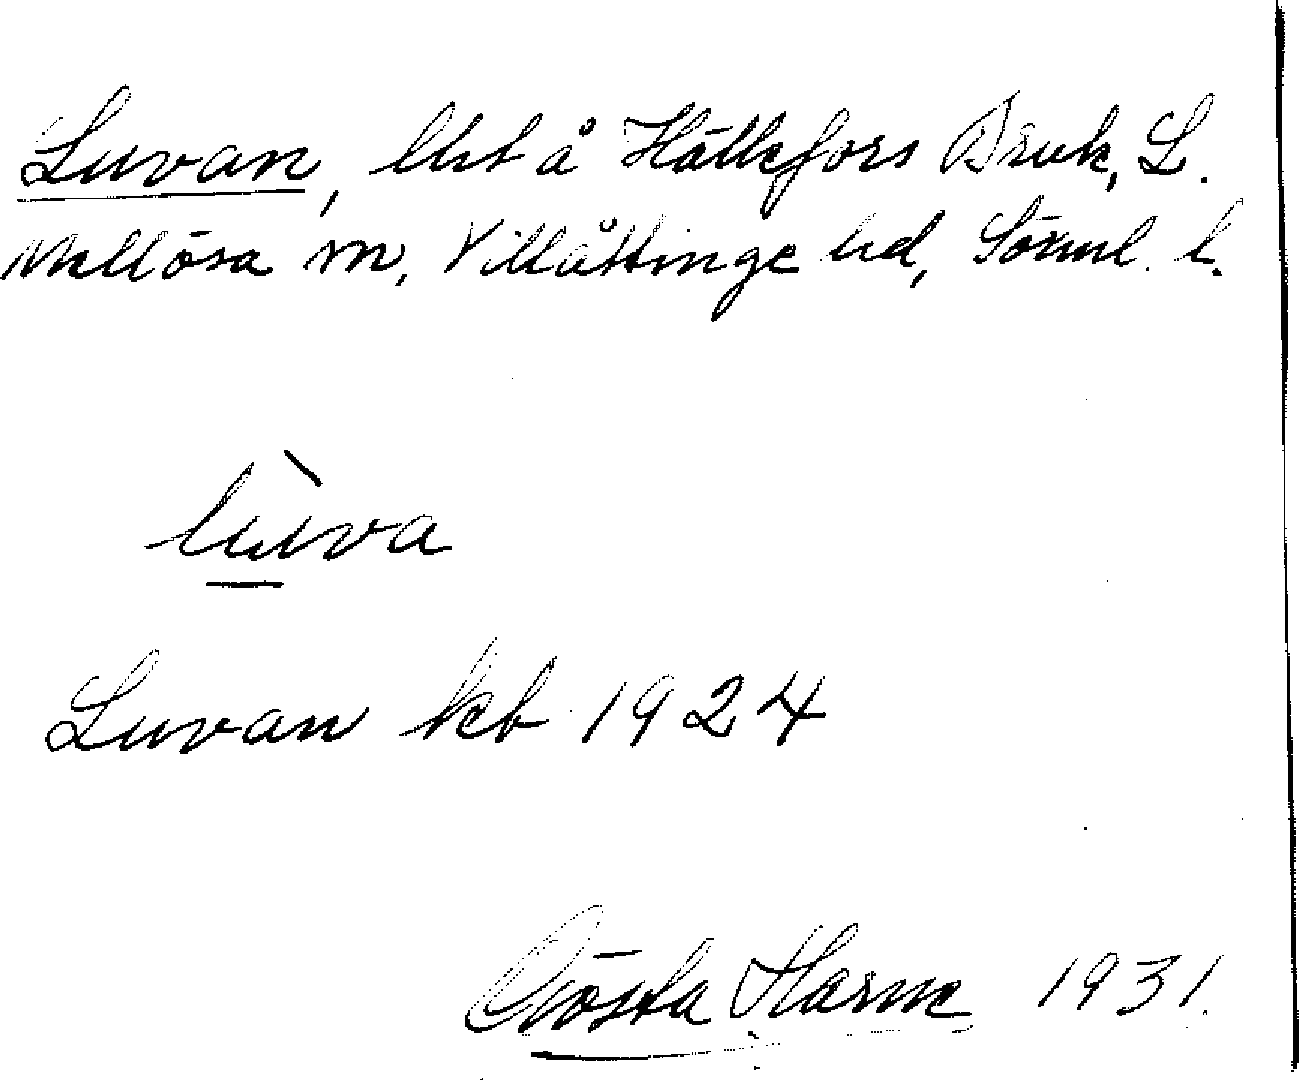 Luvan, lht å Hällefors Bruk, L.
Mellösa sn, Villåttinge hd, Sörml. l.
lùva
Luvan kb 1924
Gösta Harne 1931.